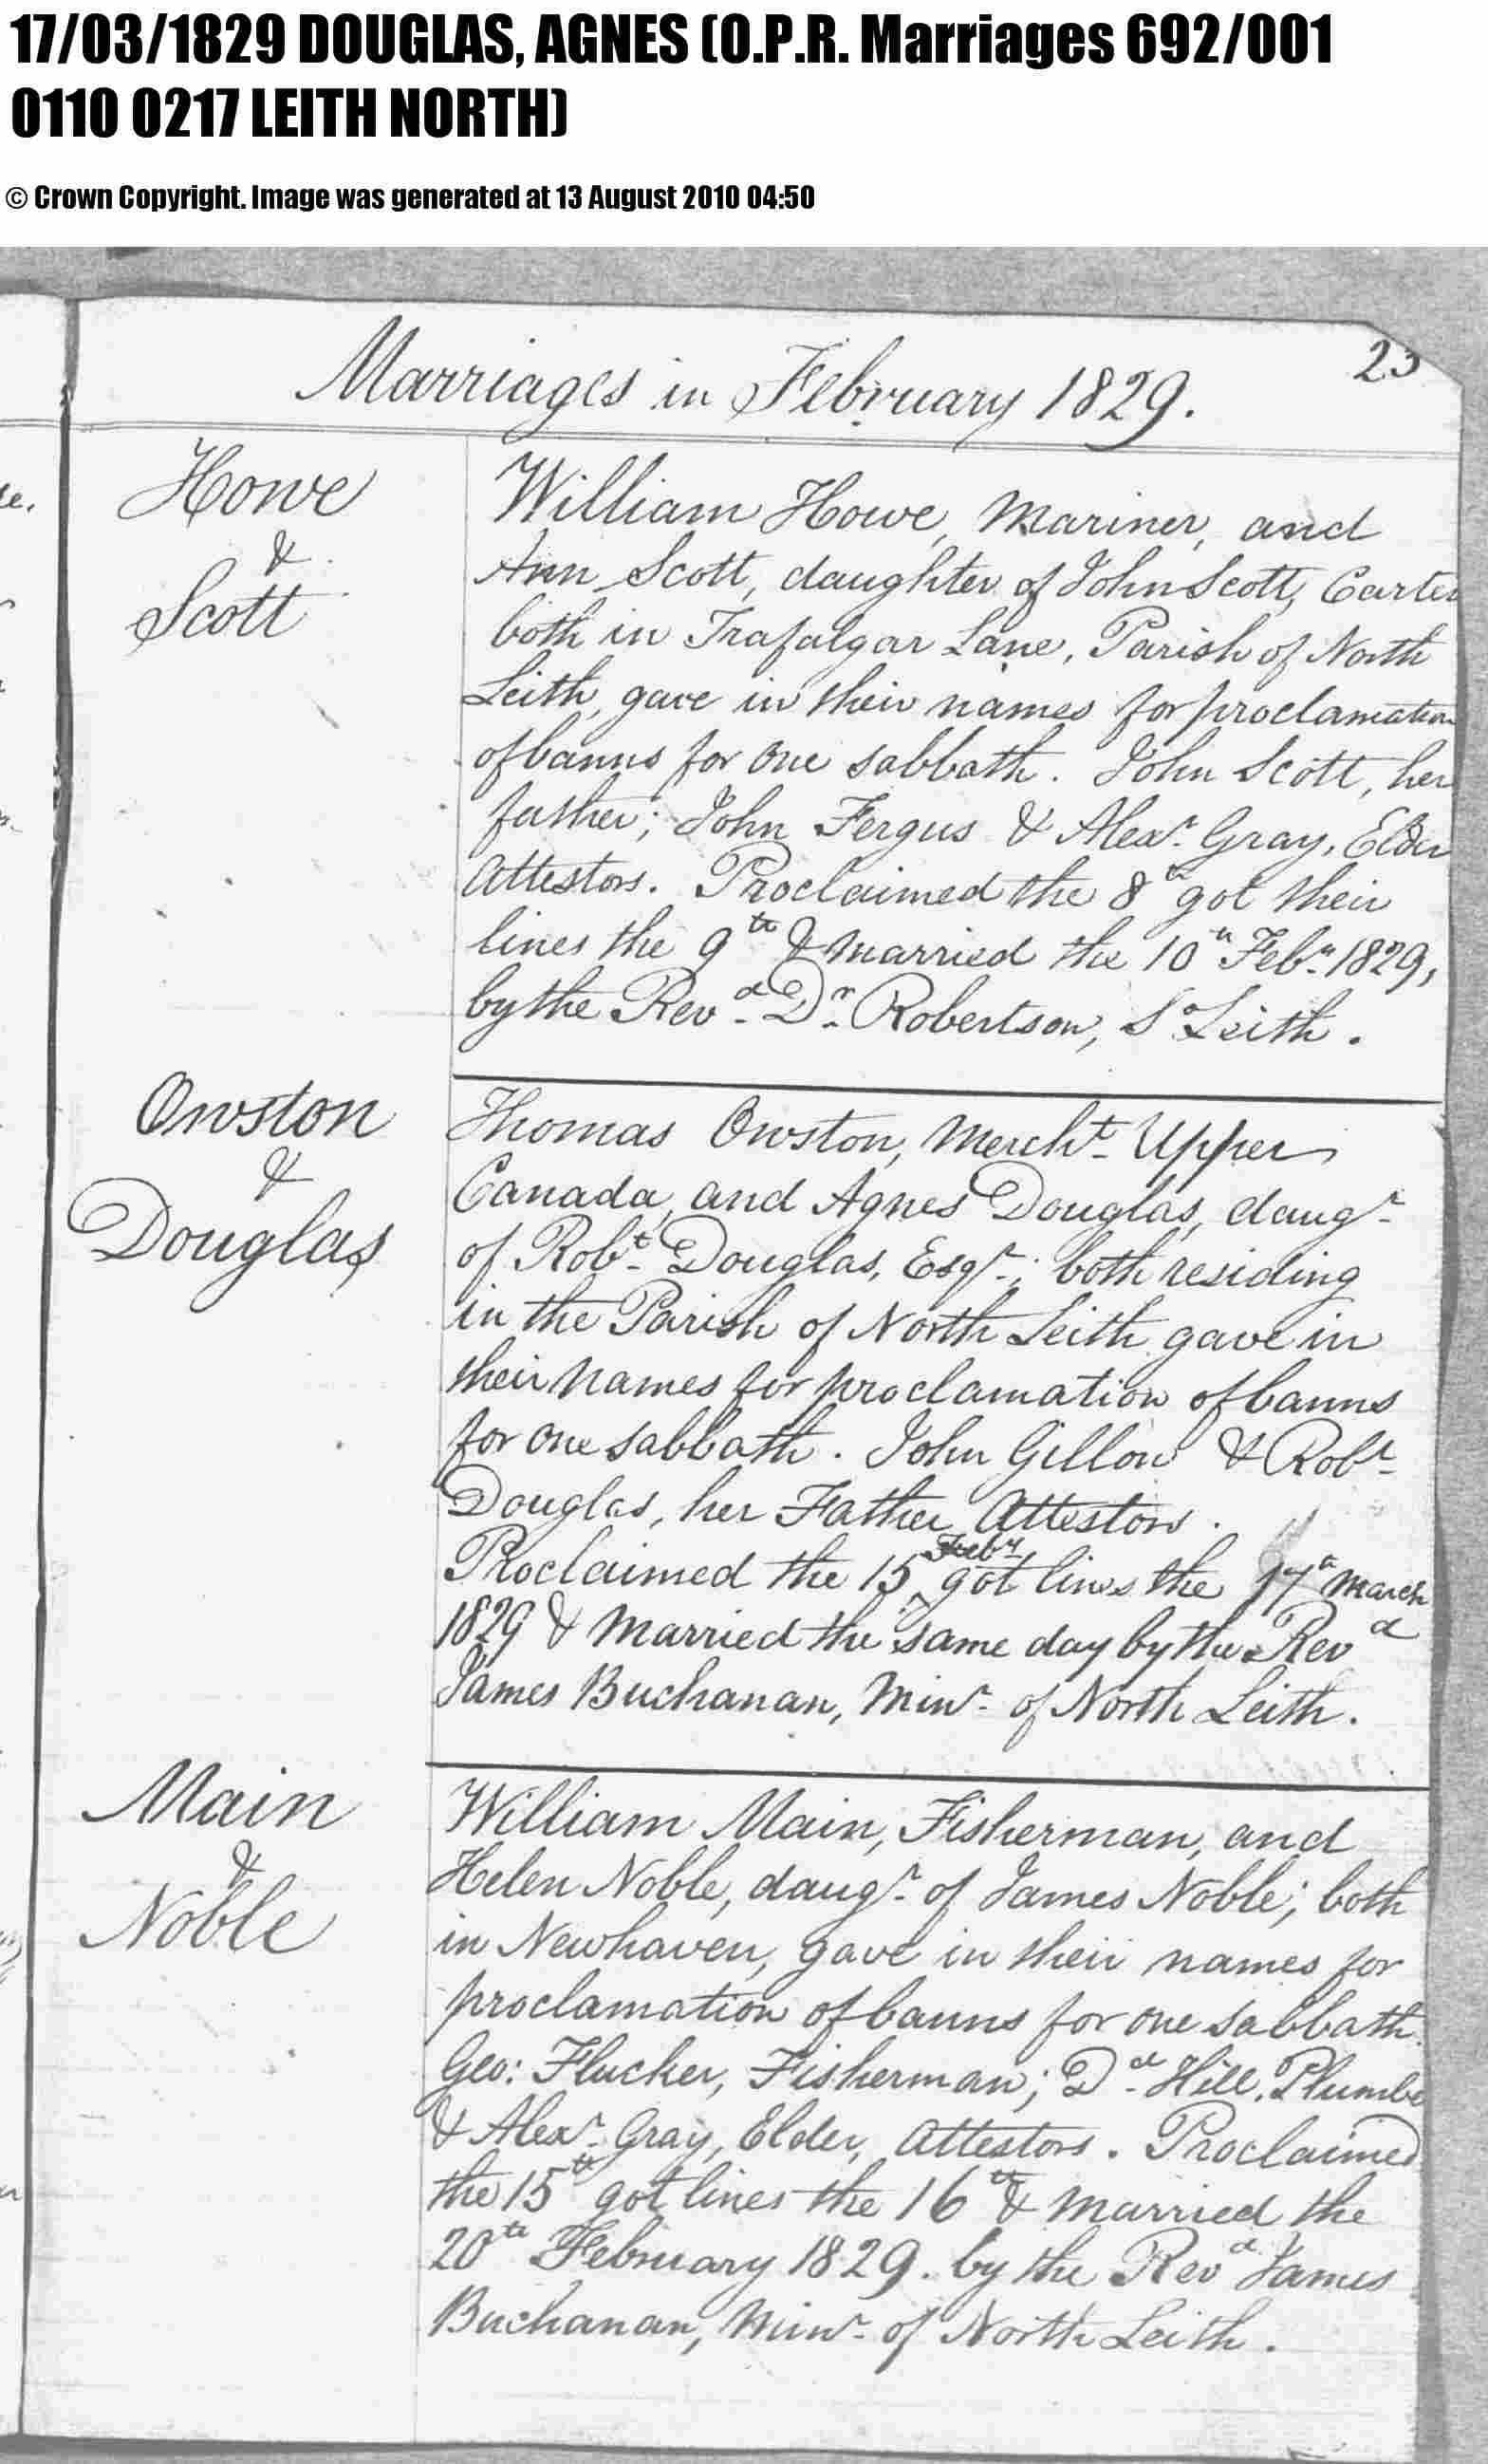 17/03/1829 DOUGLAS, AGNES (O.P.R. Marriages 692/001
0110 0217 LEITH NORTH)
© Crown Copyright. Image was generated at 13 August 2010 04:50
23
Marriages in February 1829.
Howe
&
Scott
William Howe, Mariner, and
Ann Scott, daughter of John Scott, Carter
both in Trafalgar Lane, Parish of North
Leith, gave in their names for proclamation
of banns for one sabbath. John Scott, her
father; John Fergus & Alexr. Gray, Elder
Attestors. Proclaimed the 8th got their
lines the 9th & married the 10th Febr. 1829,
by the Revd. Dr. Robertson, S. Leith.
Owston
&
Douglas
Thomas Owston, Mercht. Upper
Canada, and Agnes Douglas, daugr.
of Robt. Douglas, Esqr.; both residing
in the Parish of North Leith gave in
their names for proclamation of banns
for one sabbath. John Gillon & Robt.
Douglas, her Father, Attestors.
Proclaimed the 15 Febry. got lines the 17th March
1829 & Married the same day by the Revd
James Buchanan, Minr. of North Leith.
Main
&
Noble
William Main, Fisherman, and
Helen Noble, daugr. of James Noble; both
in Newhaven, gave in their names for
proclamation of banns for one sabbath.
Geo: Flucker, Fisherman; Dd. Hill, Plumbe
& Alexr. Gray, Elder, Attestors. Proclaimed
the 15th got lines the 16th & Married the
20th February 1829. by the Revd James
Buchanan, Minr. of North Leith.